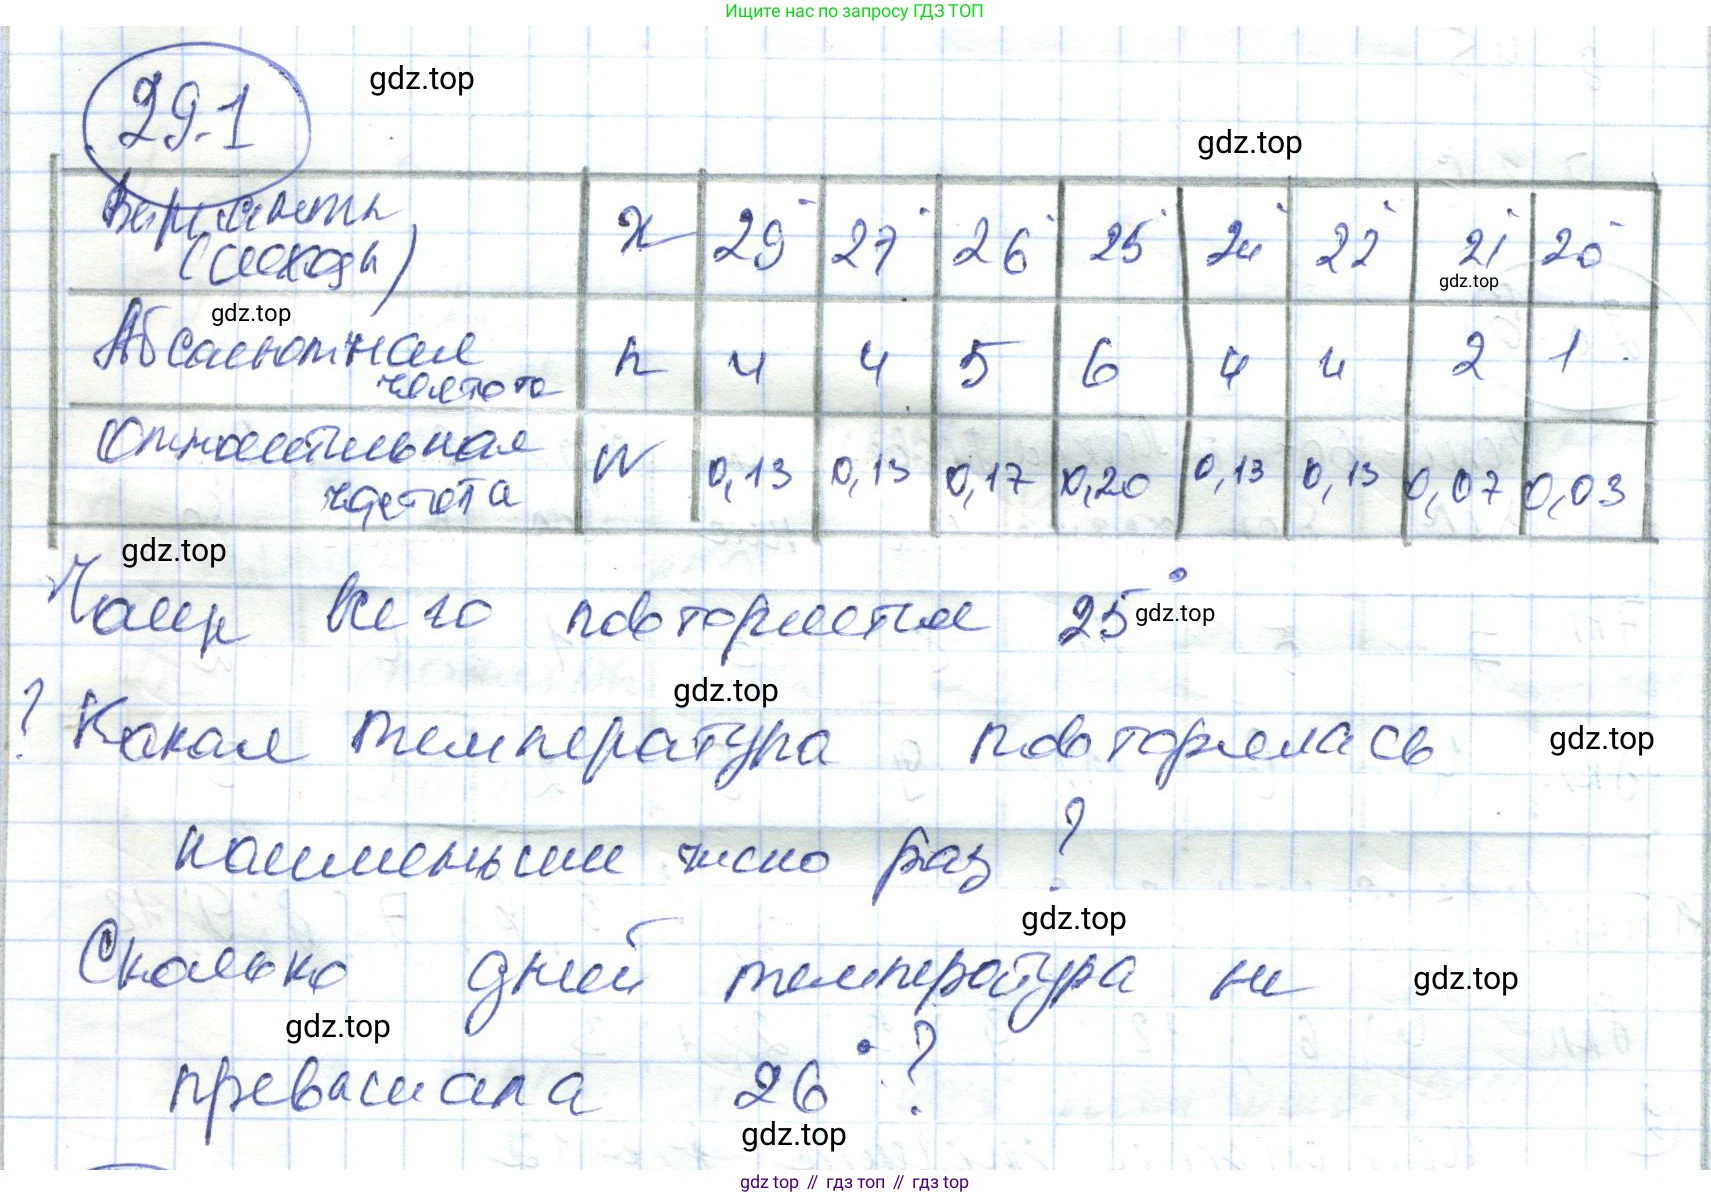 Ищите нас по запросу ГДЗ ТОП
29.1
gdz.top
gdz.top
Варианты (исходы) X 29° 27° 26° 25° 24° 22° 21° 20°
gdz.top
gdz.top
Абсолютная частота n 4 4 5 6 4 4 2 1
Относительная частота W 0,13 0,13 0,17 0,20 0,13 0,13 0,07 0,03
gdz.top
Чаще всего повторяется 25°
gdz.top
gdz.top
? Какая температура повторялась
gdz.top
наименьшее число раз?
gdz.top
Сколько дней температура не
gdz.top
gdz.top
превысила 26°?
gdz.top
gdz top // гдз топ // гдз top